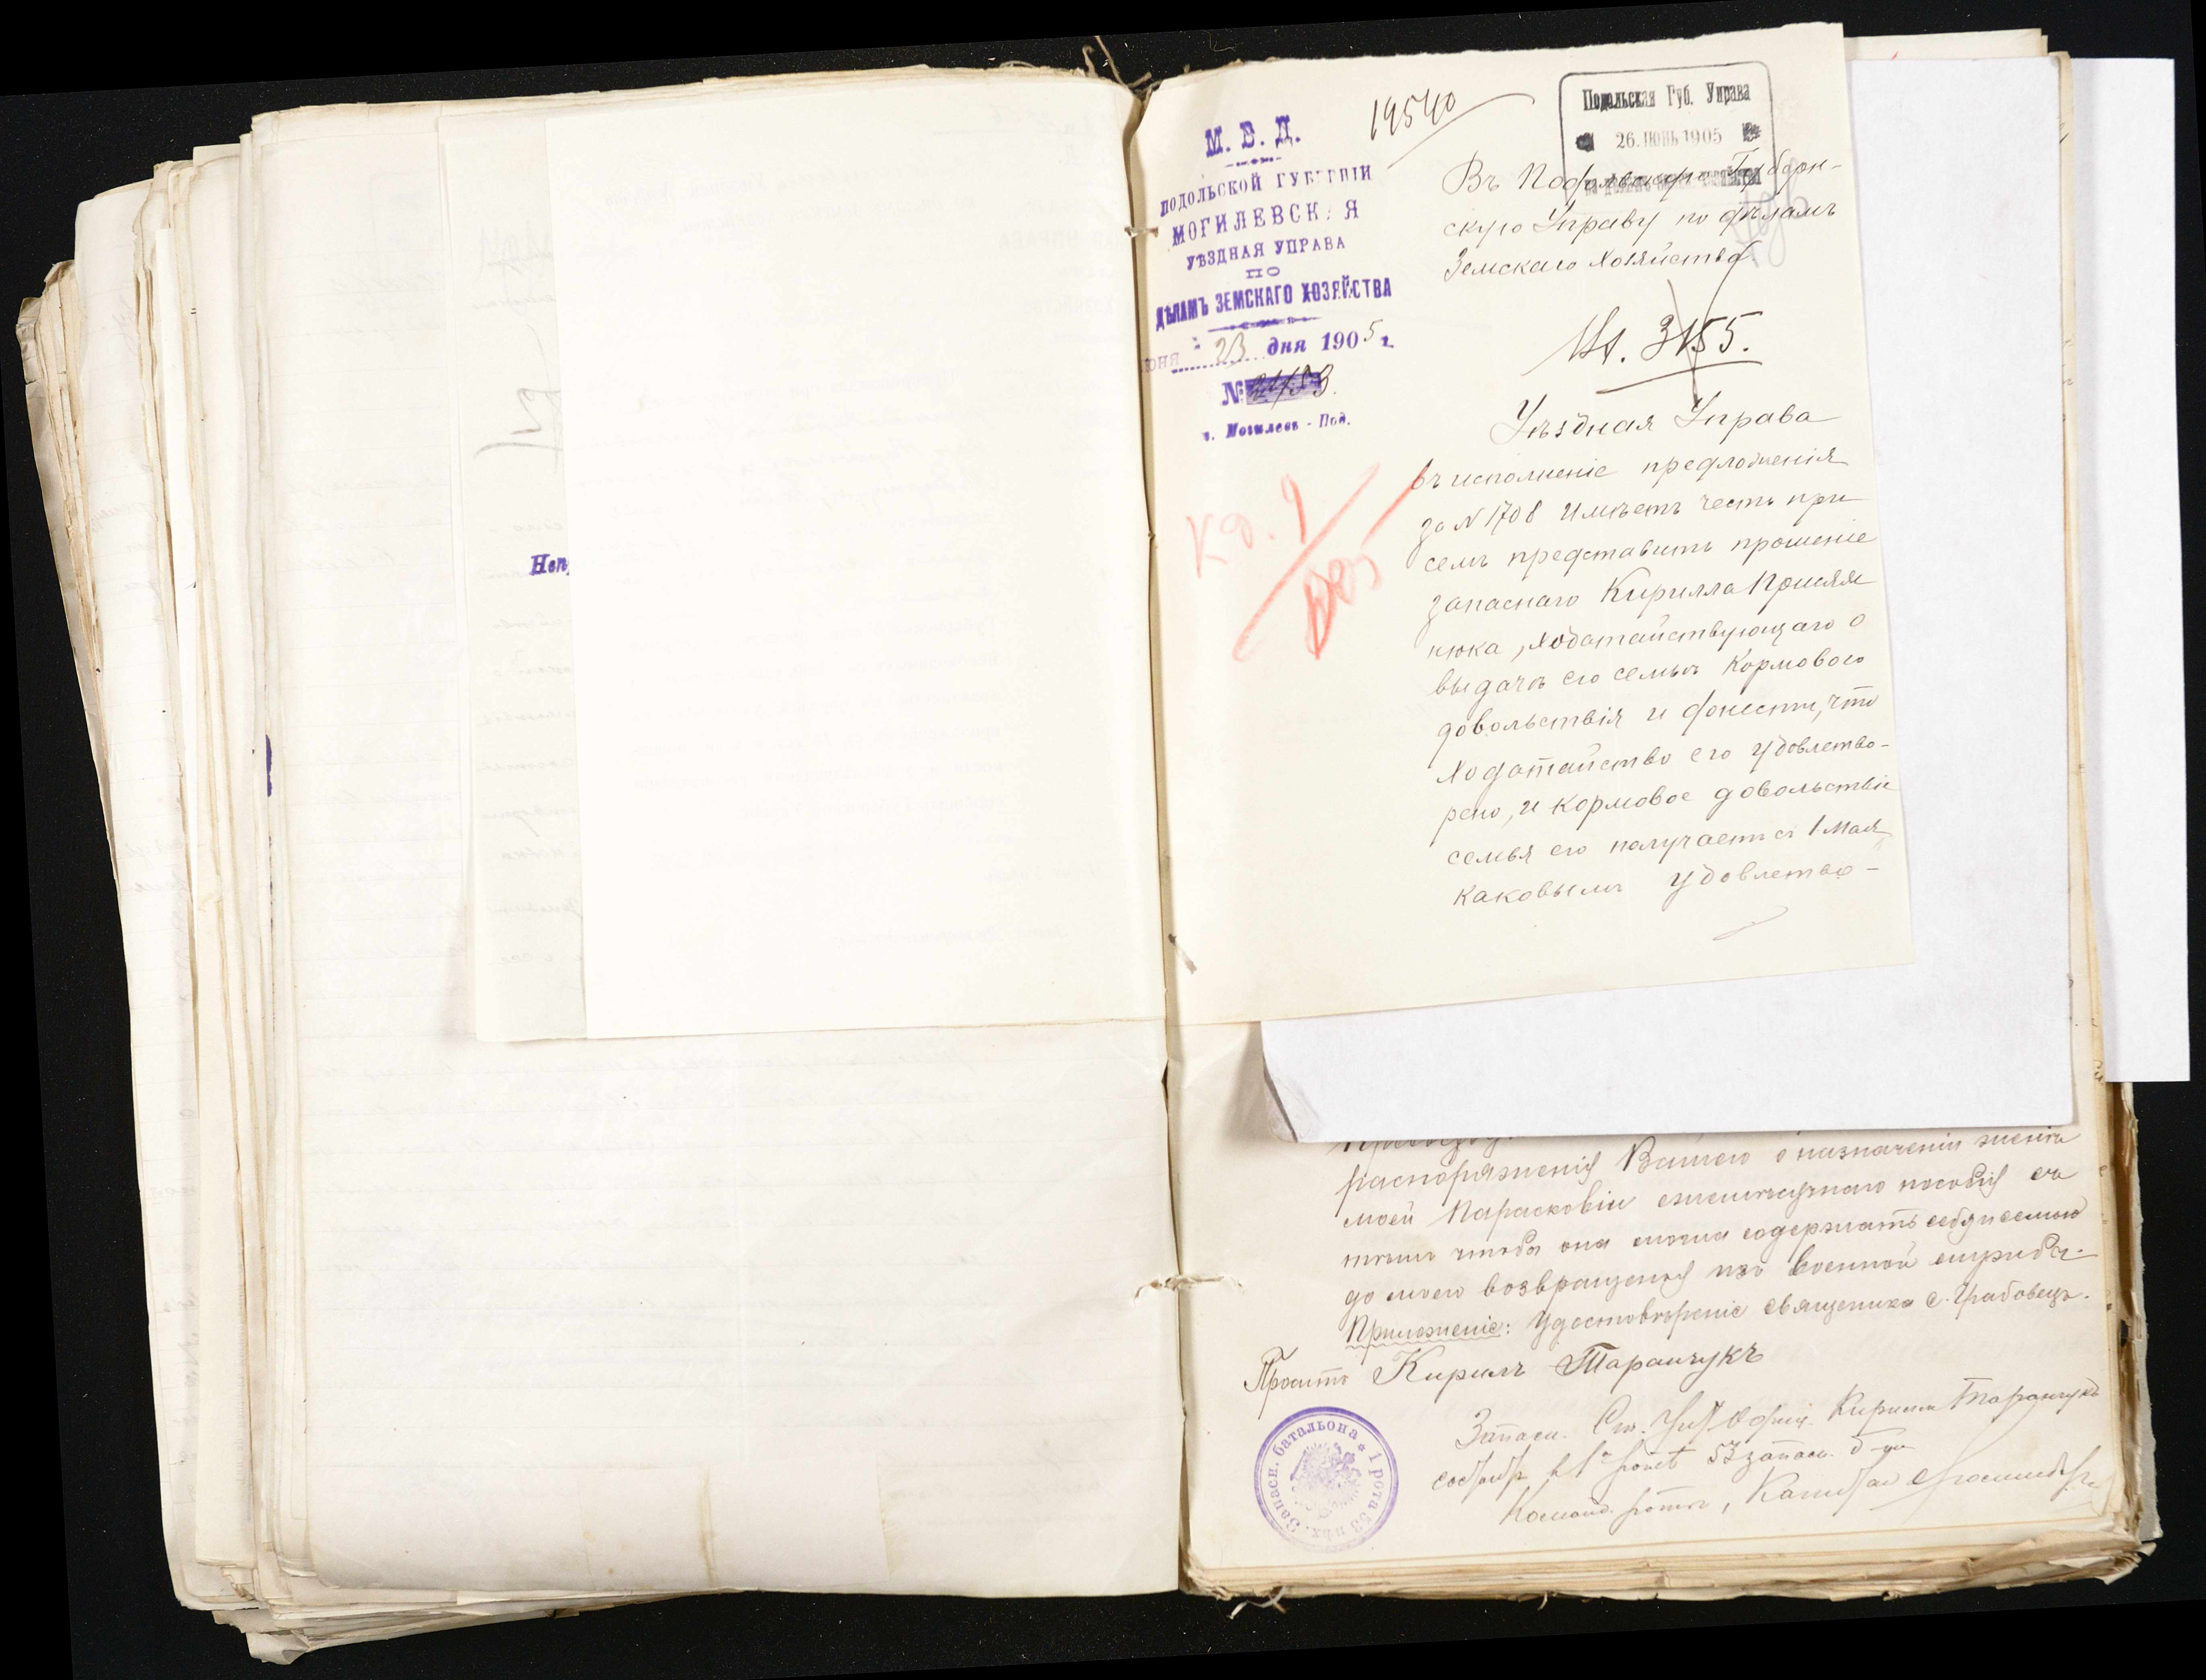 Неп
М. В. Д.
ПОДОЛЬСКОЙ ГУБЕРНІИ
МОГИЛЕВСКАЯ
УѢЗДНАЯ УПРАВА
ПО
ДѢЛАМЪ ЗЕМСКАГО ХОЗЯЙСТВА
юня 23 дня 1905 г.
№
г. Могилевъ-Под.
19540
Подольская Губ. Управа
26.ІЮНЬ 1905
Въ Подольскую Губерн-
скую Управу по дѣламъ
Земскаго Хозяйства.
3155.
Уѣздная Управа
въ исполненіе предложенія
за N 1708 имѣетъ честь при
семъ представить прошеніе
запаснаго Кирилла
нюка, ходатайствующаго о
выдачѣ его семьѣ кормового
довольствія и донести, что
ходатайство его удовлетво-
рено, и кормовое довольствіе
семья его получаетъ съ 1 Мая
каковымъ удовлетво-
распоряженія Вашего о назначеніи женѣ
моей Парасковіи ежемѣсячнаго пособія съ
тѣмъ чтобы она могла содержать себя и семью
до моего возвращенія изъ военной службы.
Приложеніе: Удостовѣреніе священника с. Грабовецъ.
Проситъ Кирилъ Таранчукъ
Запасн. Ст. Унт. Офиц. Кириллъ Таранчукъ
1й ротѣ 53 запасн. б-на
Команд. роты, Капитан
1 рота 53 пѣх. Запасн. батальона